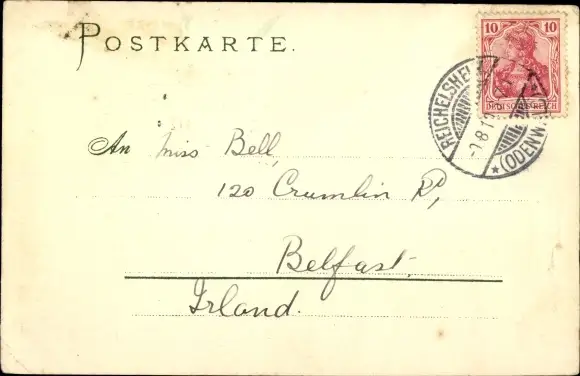 POSTKARTE.
10 10
DEUTSCHES REICH
REICHELSHEI
(ODENW
An Miss Bell,
120 Crumlin Rd,
Belfast.
Irland.